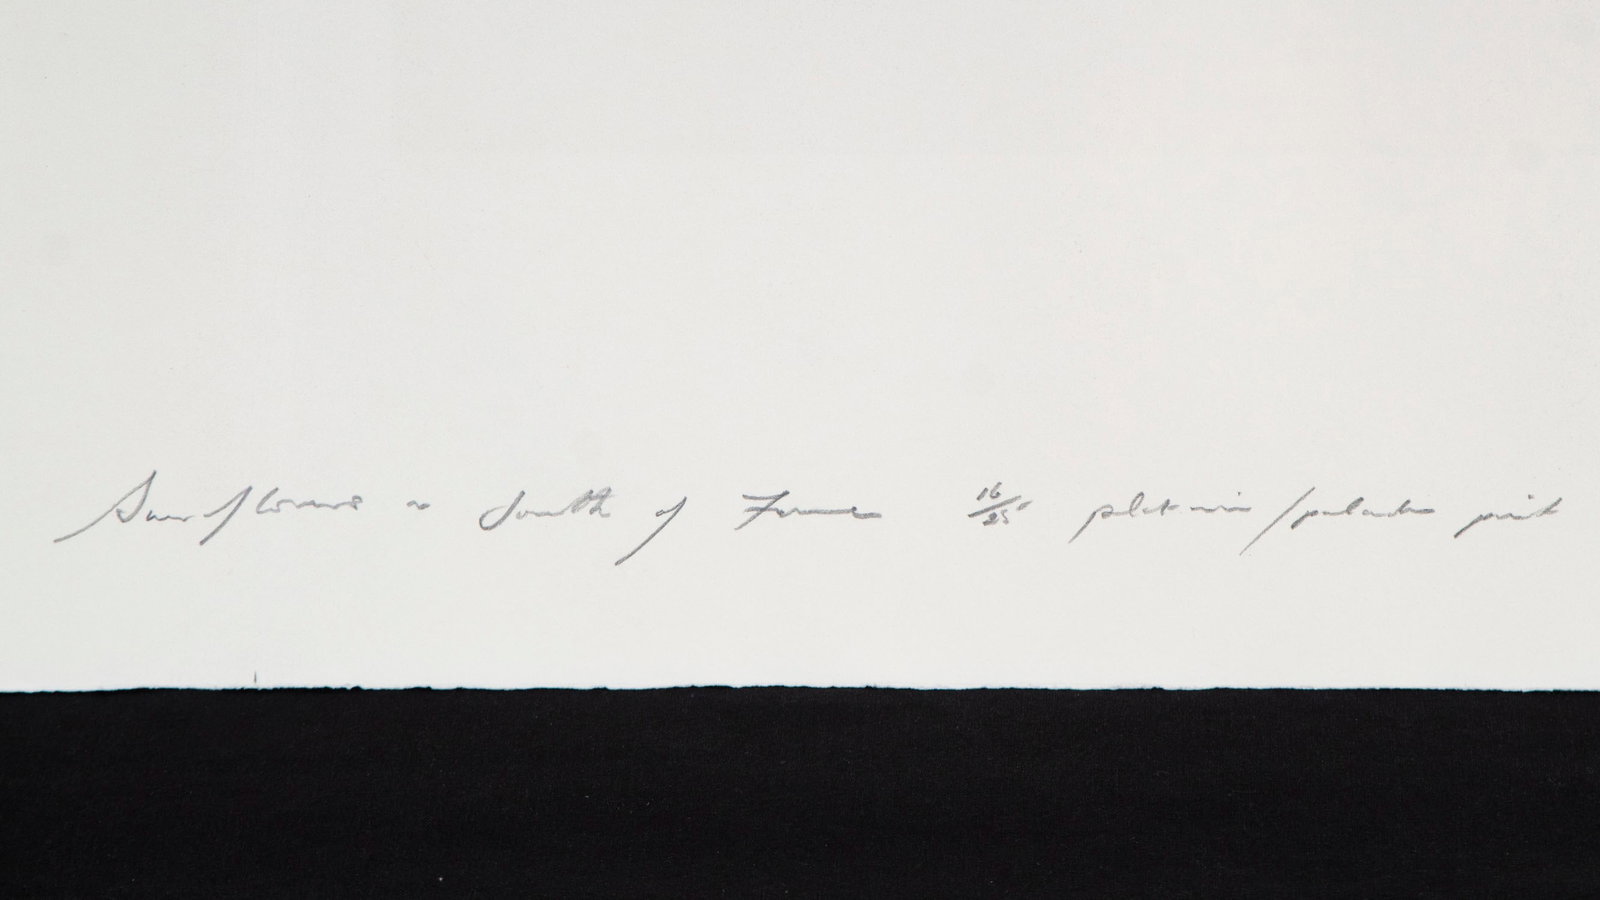 Sunflowers ~ South of France 16/25 platinum/palladium print